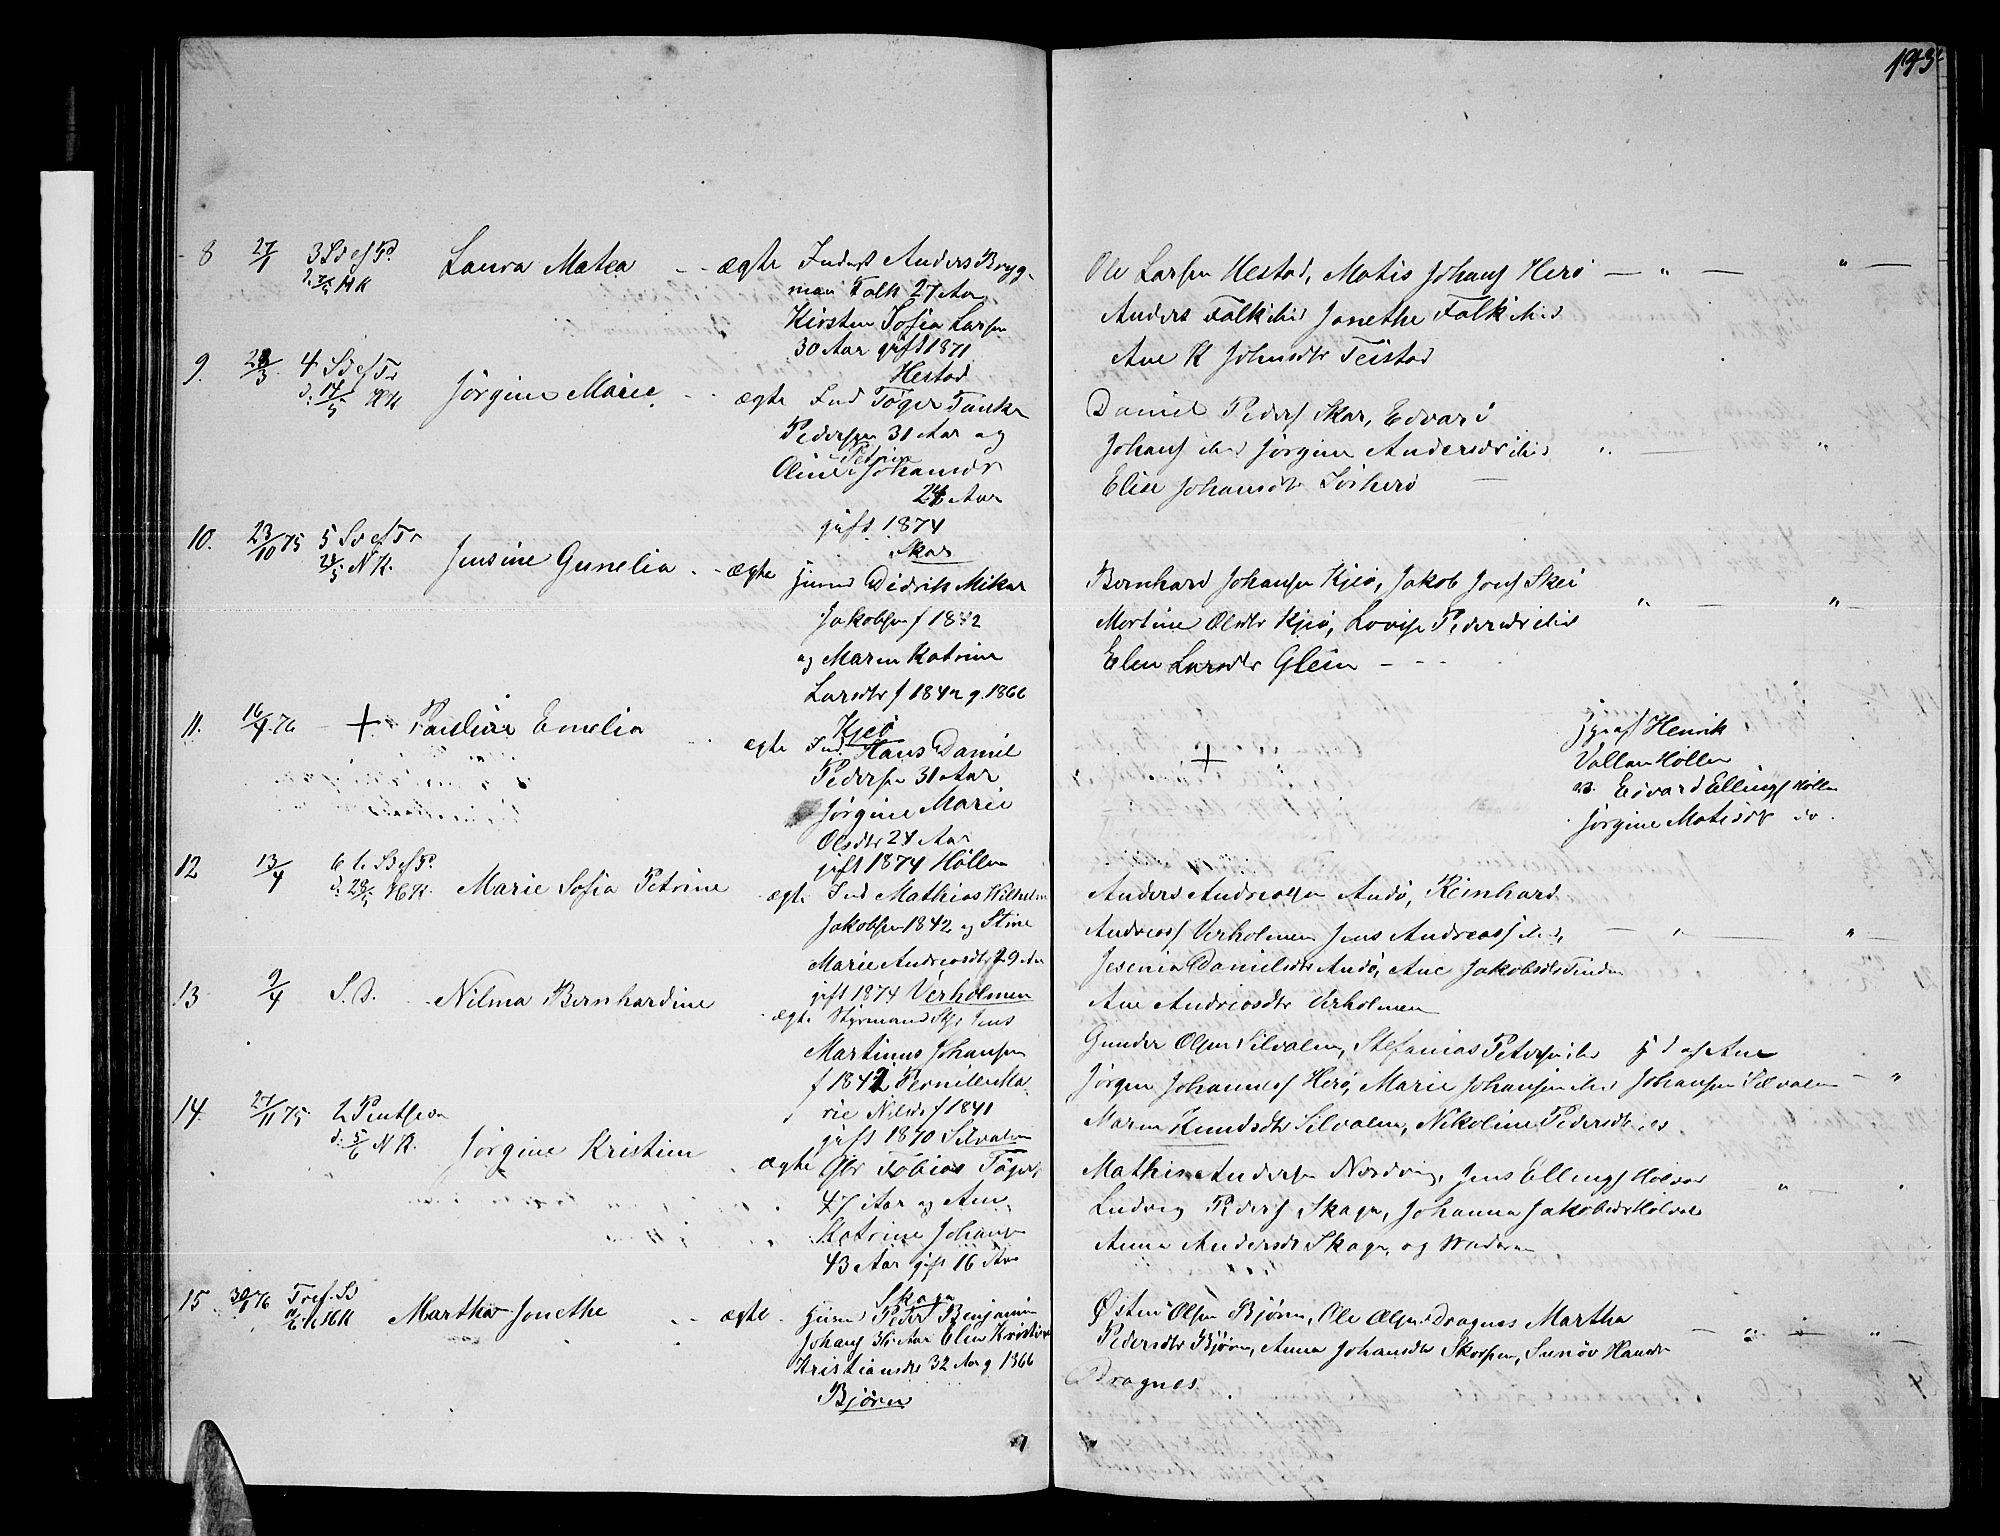 193
8 27/1 3 Sd ef P. Laura Matea ægte Inderst Anders Bryg-
d. 7/5 HK man Falk 27 Aar
Kirsten Sofia Larsen
30 Aar gift 1871
Hestad
Ole Larsen Hestad, Matis Johans Herø
Anders Falk ibid Janethe Falk ibid
Ane K Johnsdtr Teistad
9. 28/3 4 Sd ef Tr Jørgine Marie ægte Ind Tøger Tanke
d. 14/5 HK Pedersen 31 Aar og
Oline Petrine Johansdr
24 Aar
gift 1874
Skar
Daniel Peders Skar, Edvard
Johans ibid Jørgine Andersdr ibid
Elise Johansdtr Sørherø
10. 23/10 75 5 Sd ef Tr Jensine Gunelia ægte Didrik Mikal
24/5 N K. Jakobsen f 1842
og Maren Katrine
Larsdtr f 1842 g. 1866
Kjeø
Bernhard Johansen Kjeø, Jakob Josefs Skei
Mortine Olsdtr Kjeø, Lovise Pedersdr ibid
Elen Larsdtr Glein
11. 16/4 76 + Pauline Emelia ægte Ind. Hans Daniel
Pedersen 31 Aar
Jørgine Marie
Olsdtr 24 Aar
gift 1874 Høllen
+
Henrik
Vallan Høllen
Edvard Ellings Høllen
Jørgine Matisdr do.
12 13/4 6 Sd ef P. Marie Sofia Petrine ægte Ind Mathias Wilhelm
d. 28/5 HK. Jakobsen 1842 og Stine
Marie Andreasdtr 29 Aar
gift 1874 Verholmen
Anders Andreasen Andø, Reinhard
Andreass Verholmen Jens Andreass ibid,
Jesenia Danielsdtr Andø, Ane Jakobsdtr Tinden
Ane Andreasdtr Verholmen
13 9/4 S. D. Nilma Bernhardine ægte Styrmand Jens
Martinus Johansen
f 1842 Pernille Ma-
rie Nilsdr f 1841
gift 1870 Silvalen
Gunder Olsen Silvalen, Stefanias Petersen ibid
Jørgen Johanness Herø, Marie Johansen ibid Johansen Silvalen
Maren Knudsdtr Silvalen, Nikoline Pedersdtr
14. 27/11 75 2 Pentsean Jørgine Kristine ægte Tobias Tøgers
d. 5/6 N K. 47 Aar og Ane
Katrine Johans
43 Aar gift 16 Aar
Skagen
Andersen Nordvig, Jens Ellings Holvar
Ludvig Peders Skagen, Johanna Jakobsdtr
Anna Andersdtr Skagen, og Moderen
15 30/1 76 Tref. Sd Martha Jonethe ægte Peder Benjamin
11/6 HK Johans 36 Aar Elen Kristine
Kristiansdr 32 Aar g 1866
Bjørn
Østen Olsen Bjørn, Ole Olsen Dragnes Martha
Pedersdtr Bjørn, Anna Johansdtr Skorpen, Sunøv Hansdr
Dragnes